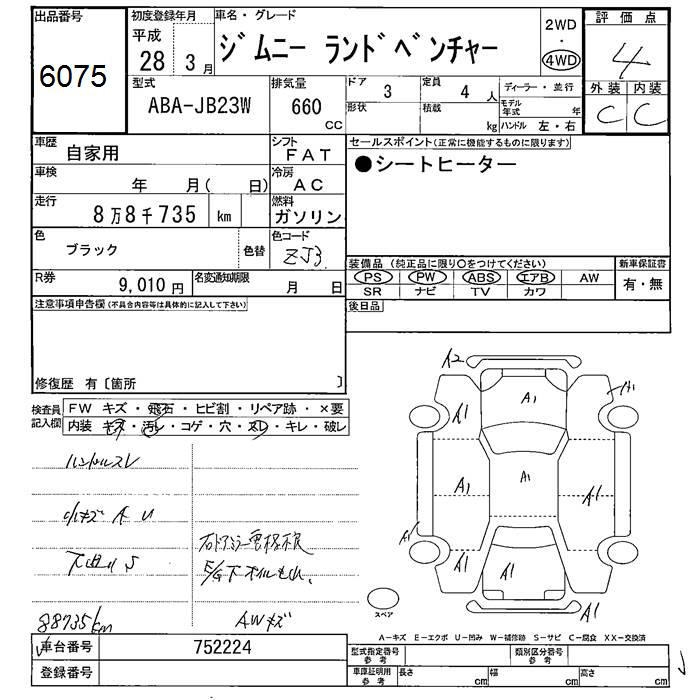 出品番号
6075
初度登録年月
平成
28 3月
車名・グレード
ジムニー ランドベンチャー
2WD
・
4WD
評価点
4
外装 内装
C C
型式
ABA-JB23W
排気量
660
CC
ドア 3
形状
定員 4 人
積載 kg
ディーラー・並行
モデル年式 年
ハンドル 左・右
車歴
自家用
シフト
FAT
セールスポイント(正常に機能するものに限ります)
●シートヒーター
車検
年 月( 日)
冷房
AC
走行
8万8千735 km
燃料
ガソリン
色
ブラック
色替
色コード
ZJ3
R券
9,010円
名変通知期限
月 日
装備品(純正品に限り〇をつけてください)
PS PW ABS エアB AW
SR ナビ TV カワ
新車保証書
有・無
後日品
注意事項申告欄(不具合内容等は具体的に記入して下さい)
修復歴 有〔箇所 〕
検査員記入欄
FW キズ・飛石・ヒビ割・リペア跡・×要
内装 キズ・汚レ・コゲ・穴・スレ・キレ・破レ
ハンドルスレ
小キズ A U
下廻りS
88735km
E/G下オイルもれ、
AWキズ
A2
A1
A1
A1
A1
A1
A1
A1
A1
A1
A1
A1
スペア
A-キズ E-エクボ U-凹み W-補修跡 S-サビ C-腐食 XX-交換済
車台番号
752224
登録番号
型式指定番号
参考
類別区分番号
参考
車庫証明用
参考
長さ cm
幅 cm
高さ cm